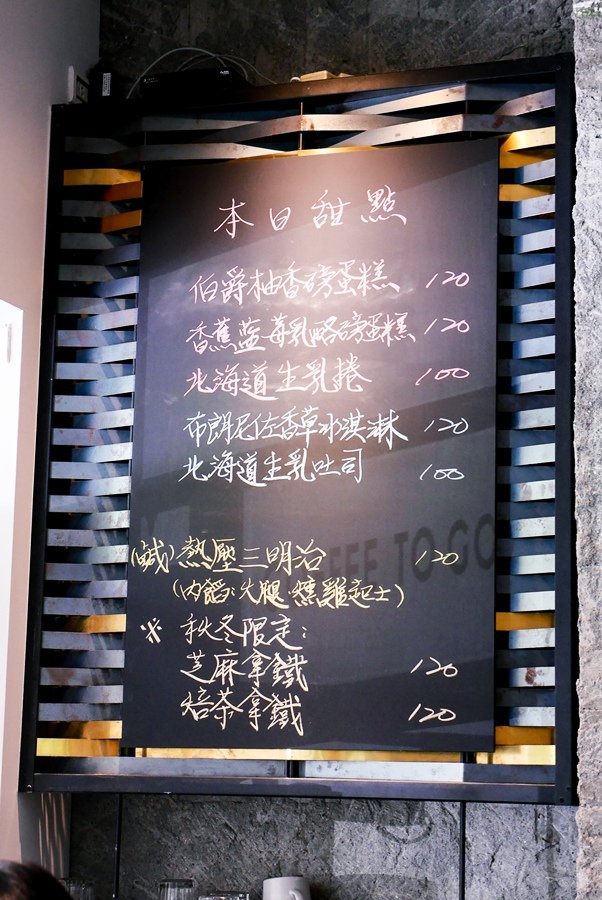 本日甜點
伯爵柚香磅蛋糕 120
香蕉藍莓乳酪磅蛋糕 120
北海道生乳捲 100
布朗尼佐香草冰淇淋 120
北海道生乳吐司 100
(鹹)熱壓三明治 120
(內餡:火腿.燻雞起士)
※秋冬限定:
芝麻拿鐵 120
焙茶拿鐵 120
COFFEE TO GO